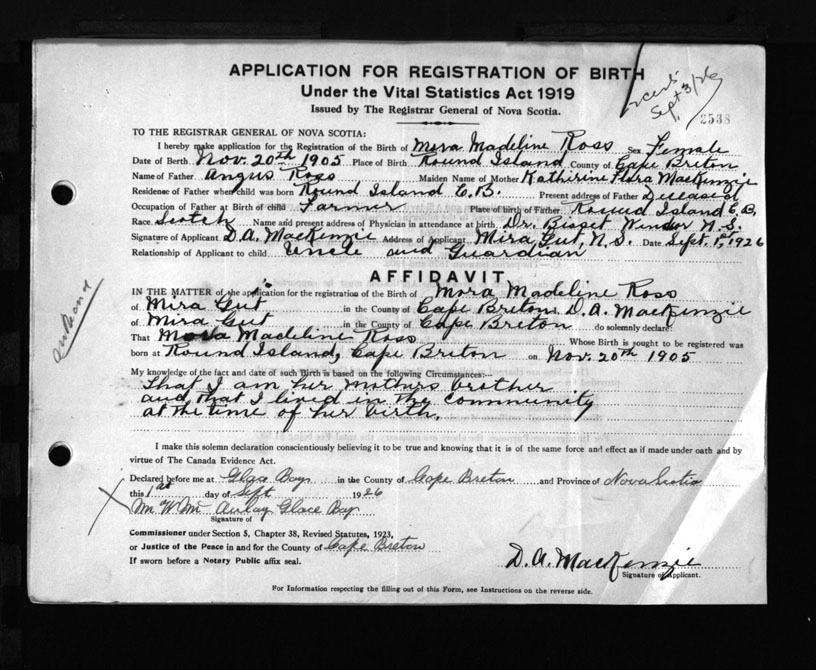 APPLICATION FOR REGISTRATION OF BIRTH
Under the Vital Statistics Act 1919
Issued by The Registrar General of Nova Scotia.
Sept 3/26
2538
TO THE REGISTRAR GENERAL OF NOVA SCOTIA:
I hereby make application for the Registration of the Birth of Mora Madeline Ross Sex Female
Date of Birth Nov. 20th 1905 Place of Birth Round Island County of Cape Breton
Name of Father Angus Ross Maiden Name of Mother Katherine Flora MacKenzie
Residence of Father when child was born Round Island C.B. Present address of Father Deceased
Occupation of Father at Birth of child Farmer Place of birth of Father Round Island C.B.
Race Scotch Name and present address of Physician in attendance at birth Dr. Bisset Windsor N.S.
Signature of Applicant D.A. MacKenzie Address of Applicant Mira Gut, N.S. Date Sept. 1st, 1926
Relationship of Applicant to child Uncle and Guardian
AFFIDAVIT
IN THE MATTER of the application for the registration of the Birth of Mora Madeline Ross
of Mira Gut in the County of Cape Breton, D.A. MacKenzie
of Mira Gut in the County of Cape Breton do solemnly declare:
That Mora Madeline Ross Whose Birth is sought to be registered was
born at Round Island, Cape Breton on Nov. 20th 1905
My knowledge of the fact and date of such Birth is based on the following Circumstances:—
That I am her mothers brother
and that I lived in the community
at the time of her birth.
I make this solemn declaration conscientiously believing it to be true and knowing that it is of the same force and effect as if made under oath and by
virtue of The Canada Evidence Act.
Declared before me at Glace Bay in the County of Cape Breton and Province of Nova Scotia
this 1st day of Sept 1926
Wm W. Mc Aulay Glace Bay
Signature of
Commissioner under Section 5, Chapter 38, Revised Statutes, 1923,
or Justice of the Peace in and for the County of Cape Breton
If sworn before a Notary Public affix seal.
D.A. MacKenzie
Signature of Applicant.
For Information respecting the filling out of this Form, see Instructions on the reverse side.